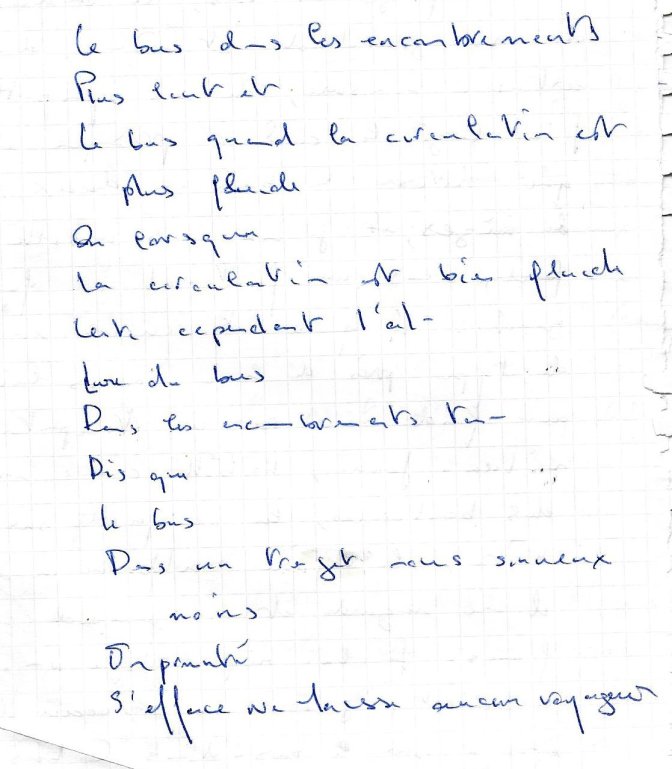 Le bus dans les encombrements
Plus lent et
Le bus quand la circulation est
plus fluide
Ou lorsque
La circulation est bien fluide
Lente cependant l'al-
lure du bus
Dans les encombrements tan-
Dis que
le bus
Dans un trajet moins sinueux
moins
Emprunté
S'efface ne laisse aucun voyageur